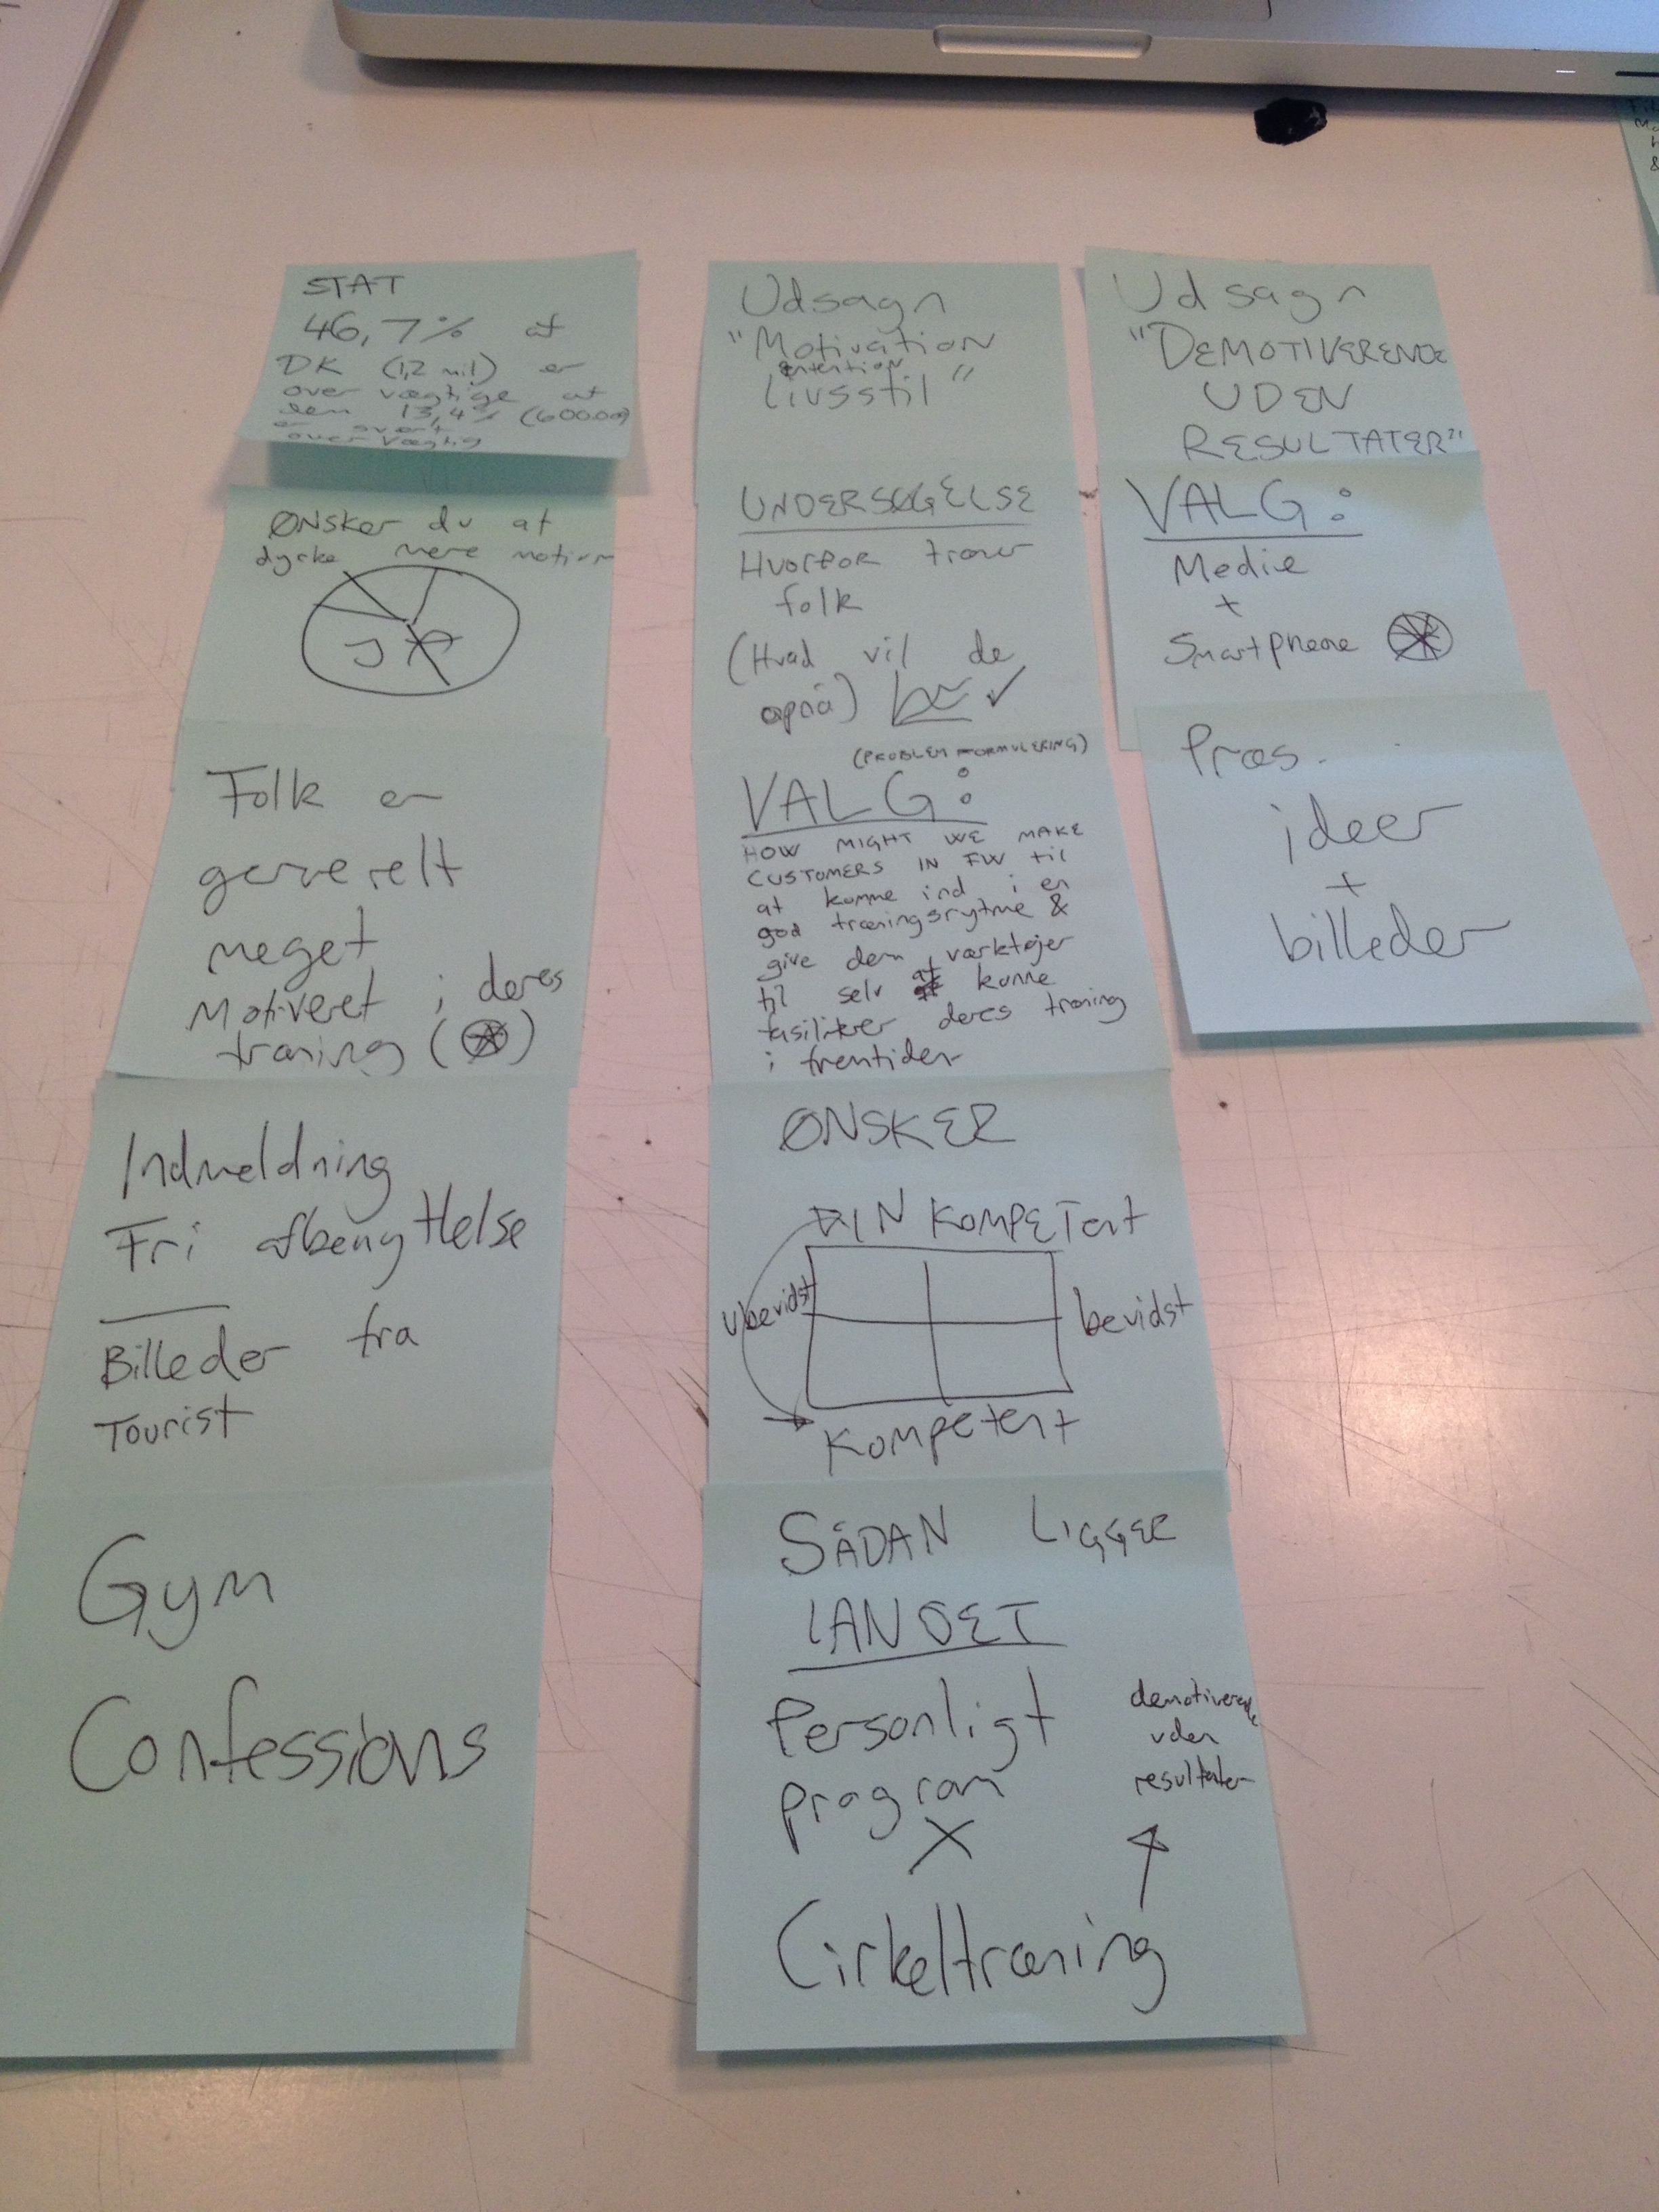 STAT
46,7% af
DK (1,2 mil) er
over vægtige af
dem 13,4% (600.000)
er svært
over vægtig
ØNSKER du at
dyrke mere motion
JA
Folk er
generelt
meget
Motiveret i deres
træning ( )
Indmeldning
Fri afbenyttelse
Billeder fra
Tourist
Gym
Confessions
Udsagn
"Motivation
intention
Livsstil"
UNDERSØGELSE
HVORFOR træner
folk
(Hvad vil de
opnå)
(PROBLEM FORMULERING)
VALG:
HOW MIGHT WE MAKE
CUSTOMERS IN FW til
at komme ind i en
god træningsrytme &
give dem værktøjer
til selv at kunne
fasiliterer deres træning
i fremtiden
ØNSKER
INKOMPETENT
Ubevidst
bevidst
Kompetent
SÅDAN LIGGER
LANDET
Personligt
program
X
demotiverende
uden
resultater
Cirkeltræning
Udsagn
"DEMOTIVERENDE
UDEN
RESULTATER"
VALG:
Medie
+
Smartphone
Præs.
ideer
+
billeder